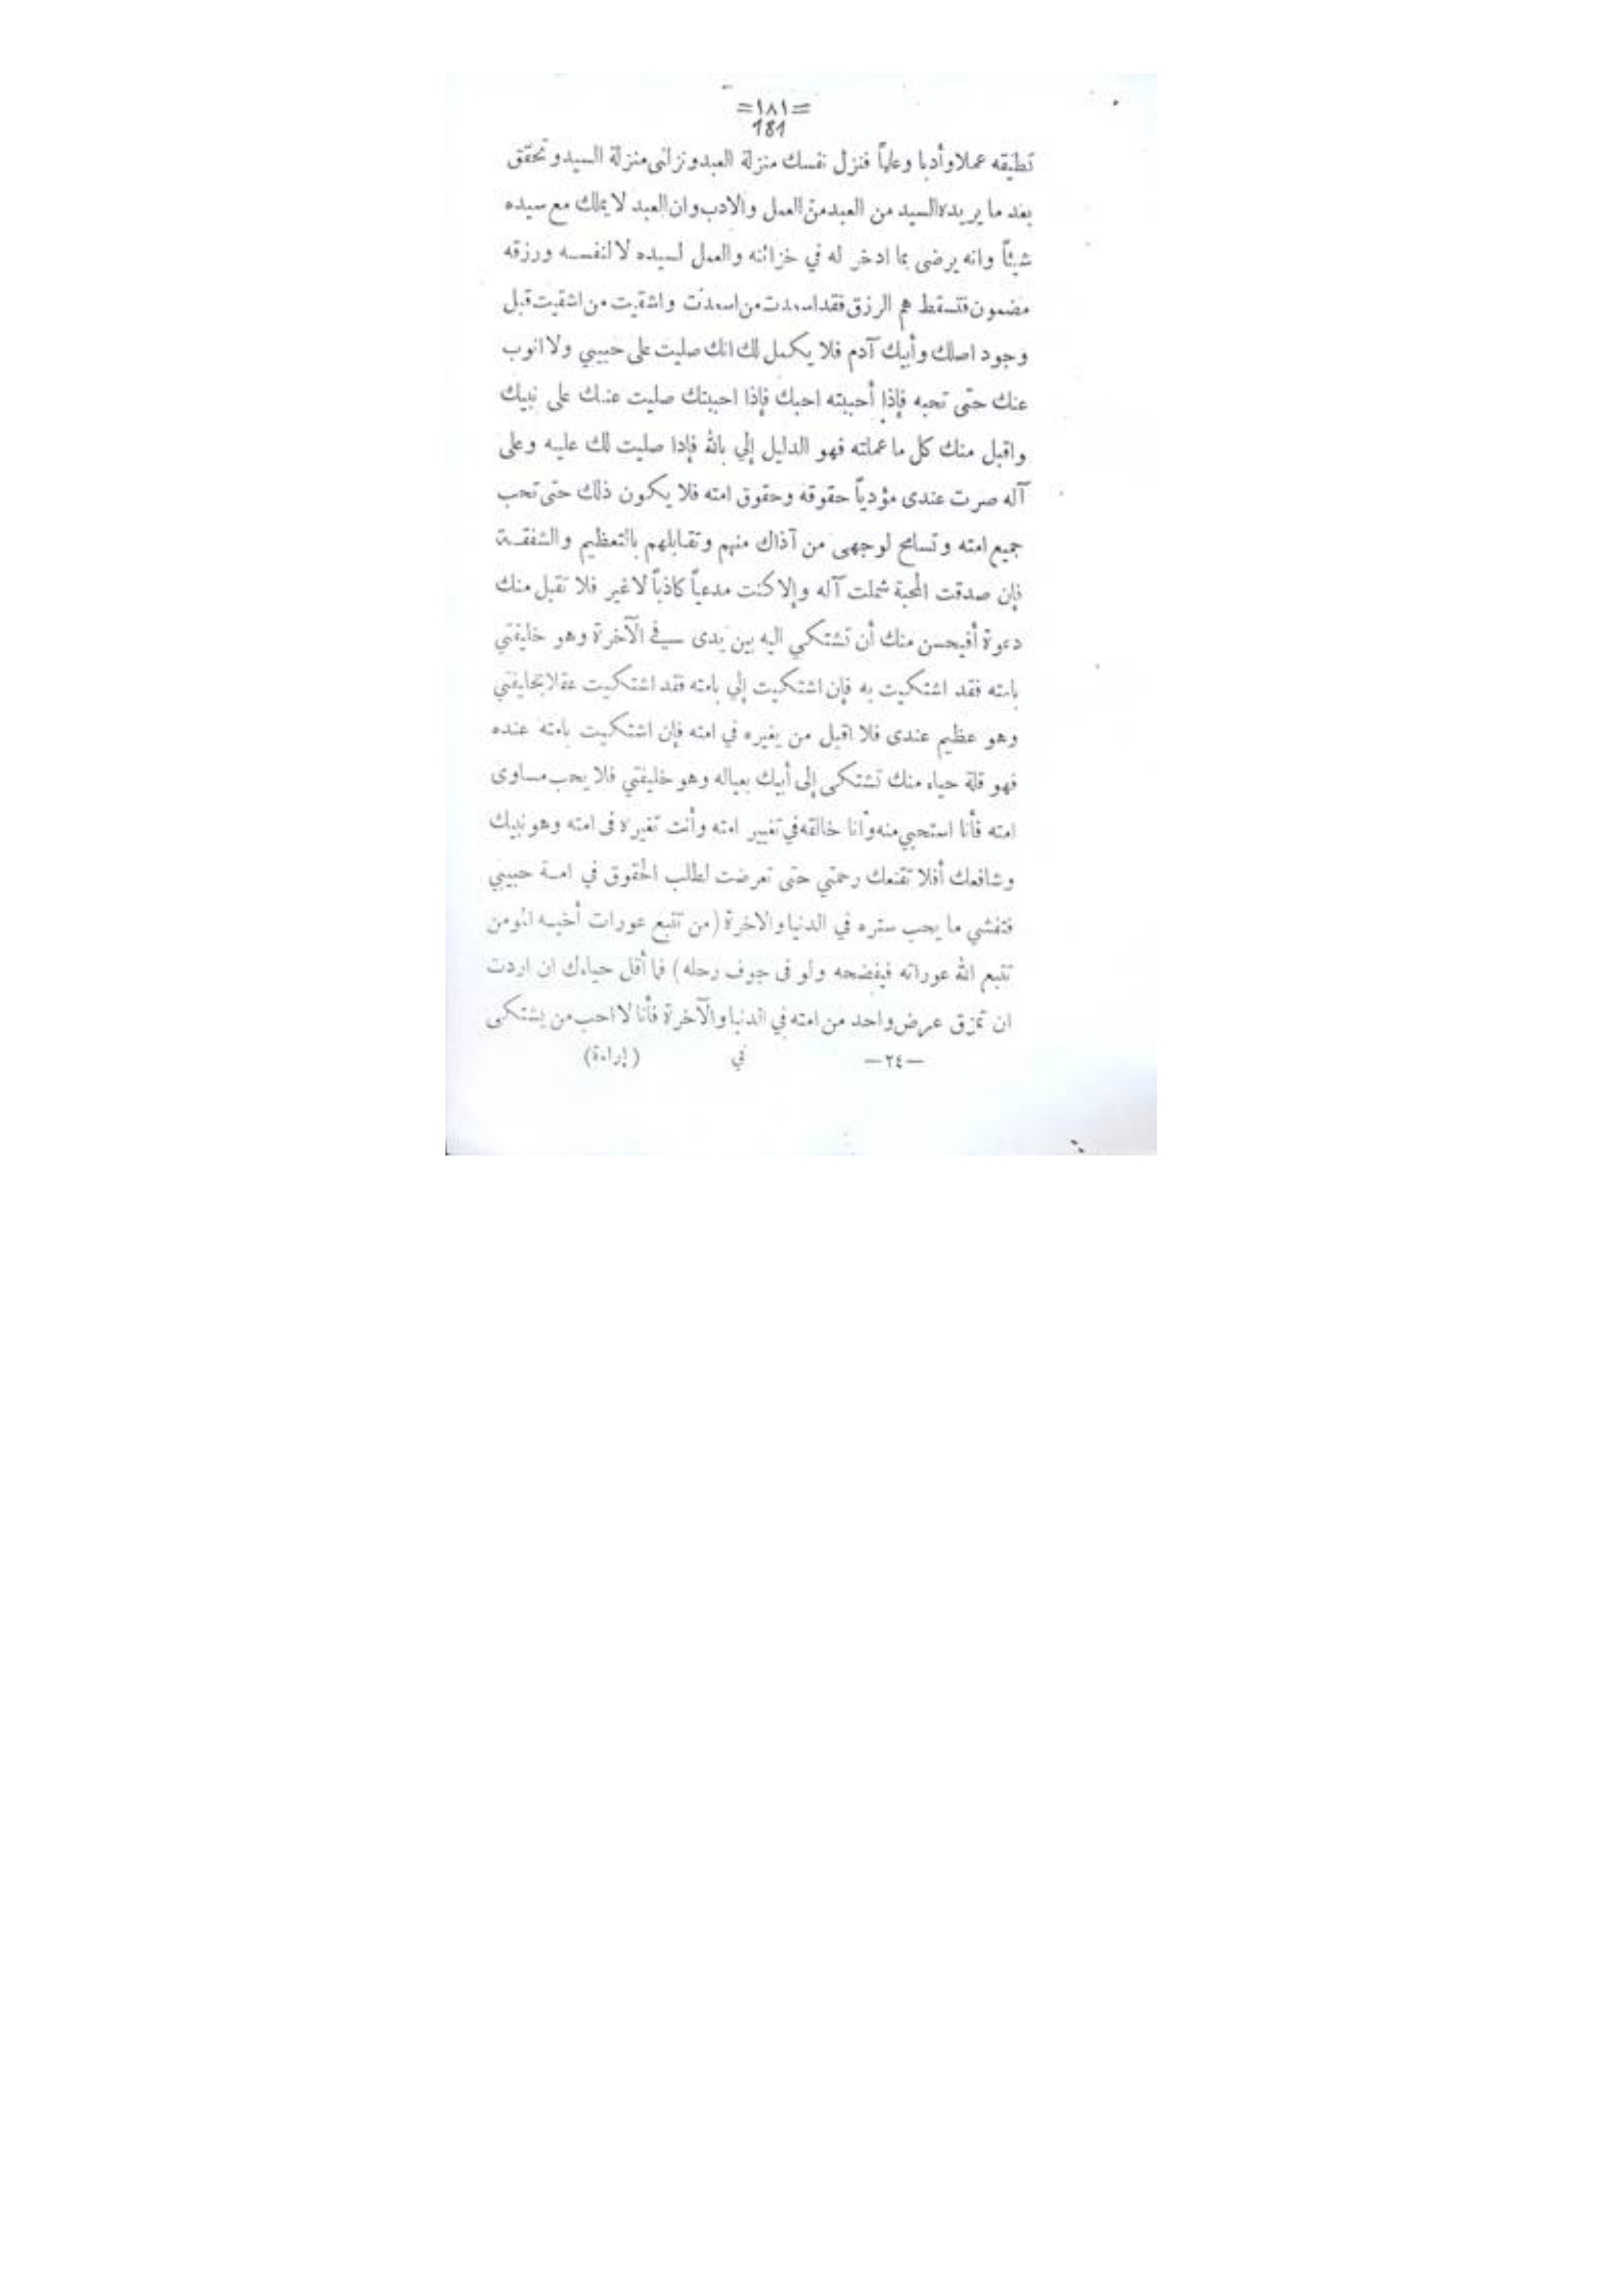 =١٨١=
181
تطيقه عملا وأدبا وعلماً فنزل نفسك منزلة العبد ونزلنى منزلة السيد وتحقق
بعد ما يريده السيد من العبد من العمل والادب وان العبد لا يملك مع سيده
شيئاً وانه يرضى بما ادخر له في خزائنه والعمل لسيده لا لنفسه ورزقه
مضمون فتسقط هم الرزق فقد اسعدت من اسعدت واشقيت من اشقيت قبل
وجود اصلك وأبيك آدم فلا يكمل لك انك صليت على حبيبي ولا انوب
عنك حتى تحبه فإذا أحببته احبك فإذا احببتك صليت عنك على نبيك
واقبل منك كل ما عملته فهو الدليل إلي بالله فإذا صليت لك عليه وعلى
آله صرت عندى مؤدياً حقوقه وحقوق امته فلا يكون ذلك حتى تحب
جميع امته وتسامح لوجهى من آذاك منهم وتقابلهم بالتعظيم والشفقة
فإن صدقت المحبة شملت آله وإلا كنت مدعياً كاذباً لا غير فلا تقبل منك
دعوة أفيحسن منك أن تشتكي اليه بين يدى في الآخرة وهو خليفتي
بامته فقد اشتكيت به فإن اشتكيت إلي بامته فقد اشتكيت عقلا بخليفتي
وهو عظيم عندى فلا اقبل من يغيره في امته فإن اشتكيت بامته عنده
فهو قلة حياء منك تشتكى إلى أبيك بعياله وهو خليفتي فلا يحب مساوى
امته فأنا استحيي منه وأنا خالقه في تغيير امته وأنت تغيره فى امته وهو نبيك
وشافعك أفلا تقنعك رحمتي حتى تعرضت لطلب الحقوق في امة حبيبي
فتفشي ما يحب ستره في الدنيا والاخرة (من تتبع عورات أخيه المومن
تتبع الله عوراته فيفضحه ولو فى جوف رحله) فما أقل حياءك ان اردت
ان تمزق عرض واحد من امته في الدنيا والآخرة فأنا لا احب من يشتكى
—٢٤— في (إراءة)